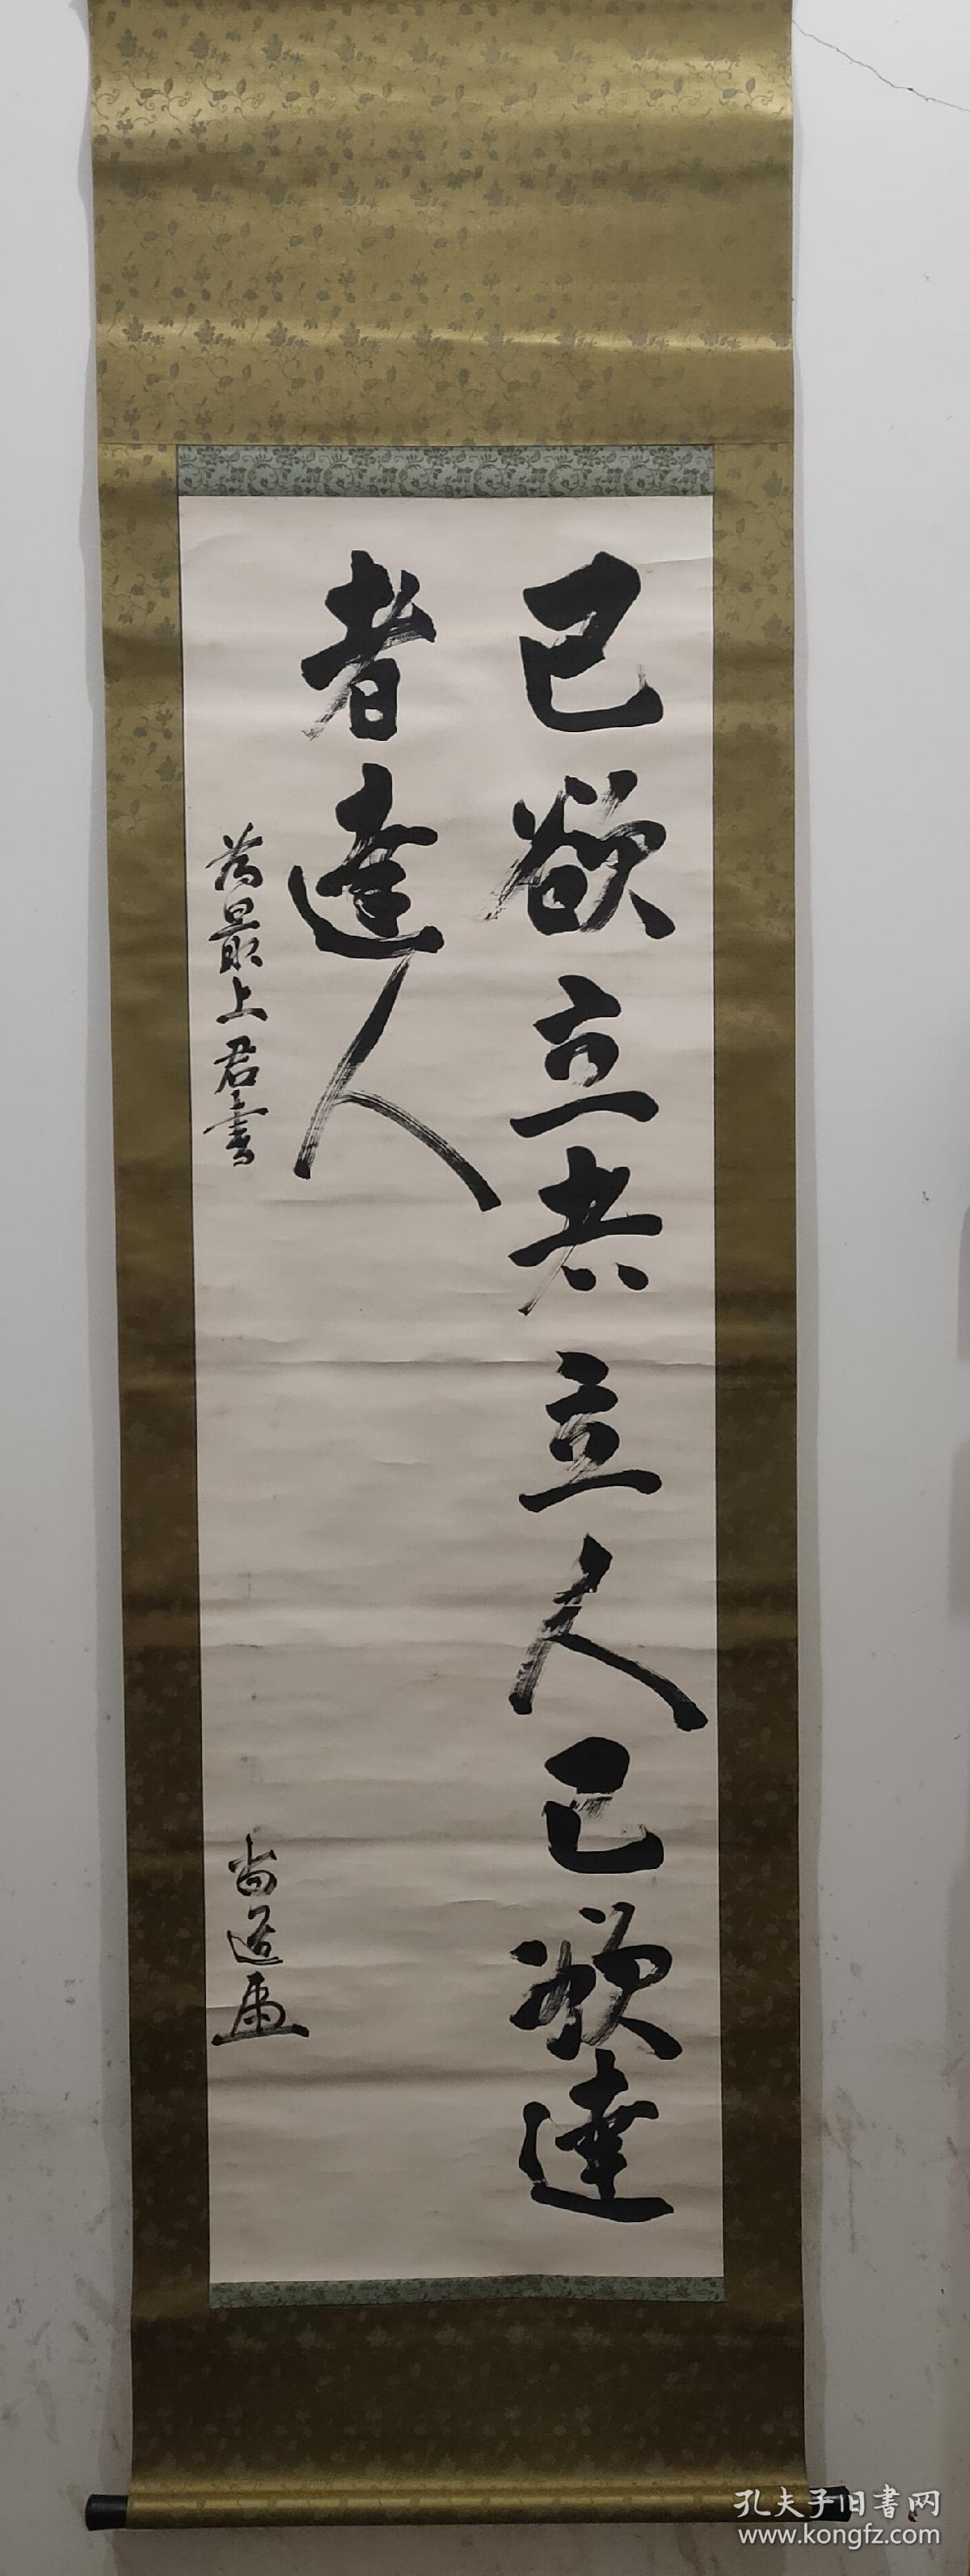 己欲立共立人己欲達
者達人
為最上君書
尚道
孔夫子旧書网
www.kongfz.com